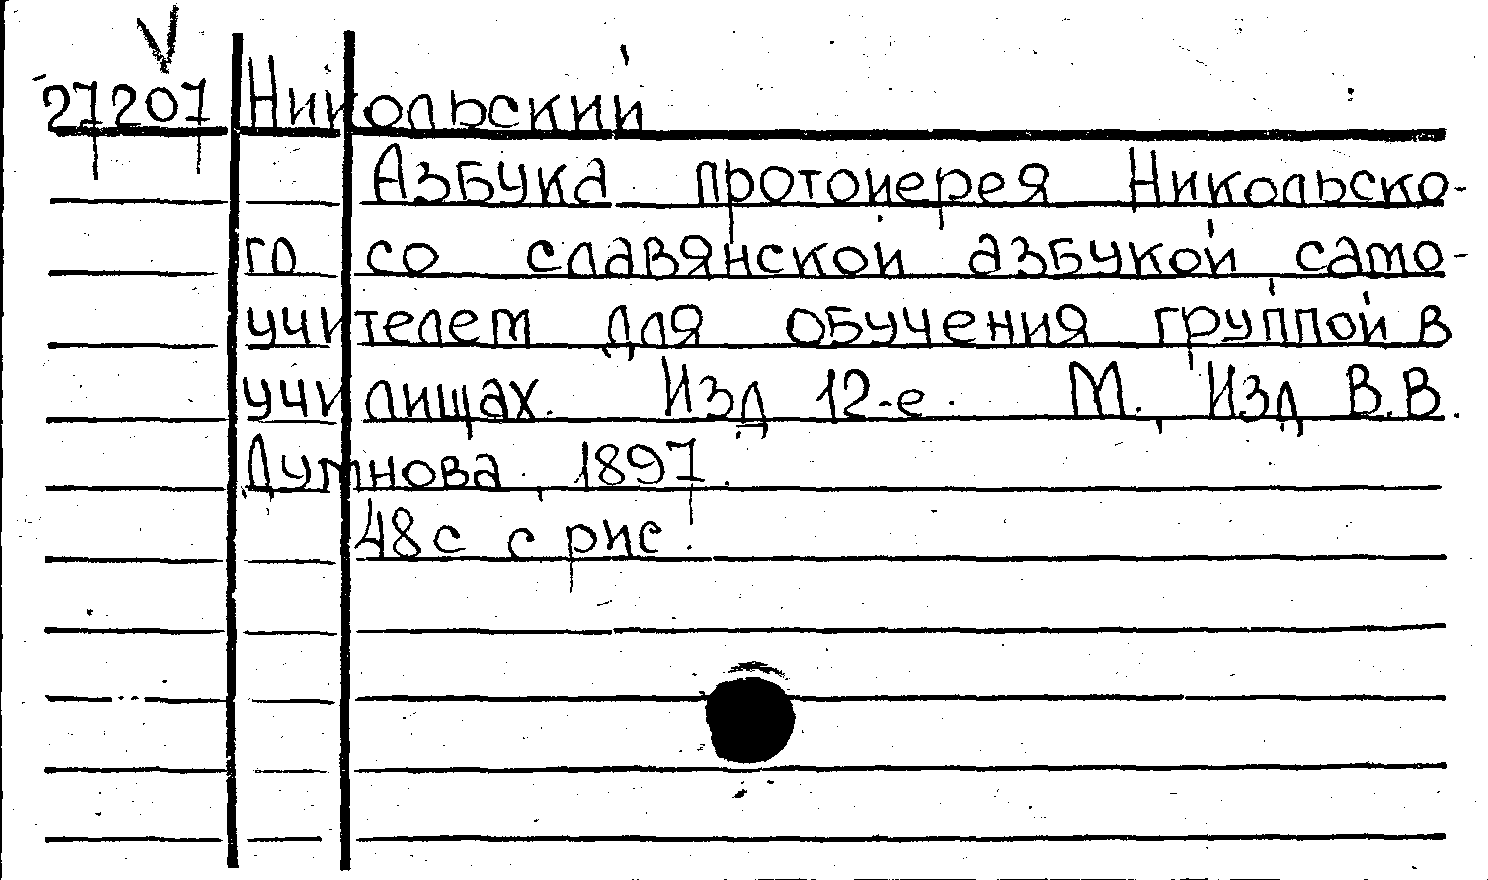 V
27207 Никольский
Азбука протоиерея Никольско-
го со славянской азбукой само-
учителем для обучения группой в
училищах. Изд 12-е. М., Изд В.В.
Думнова, 1897.
48с с рис.